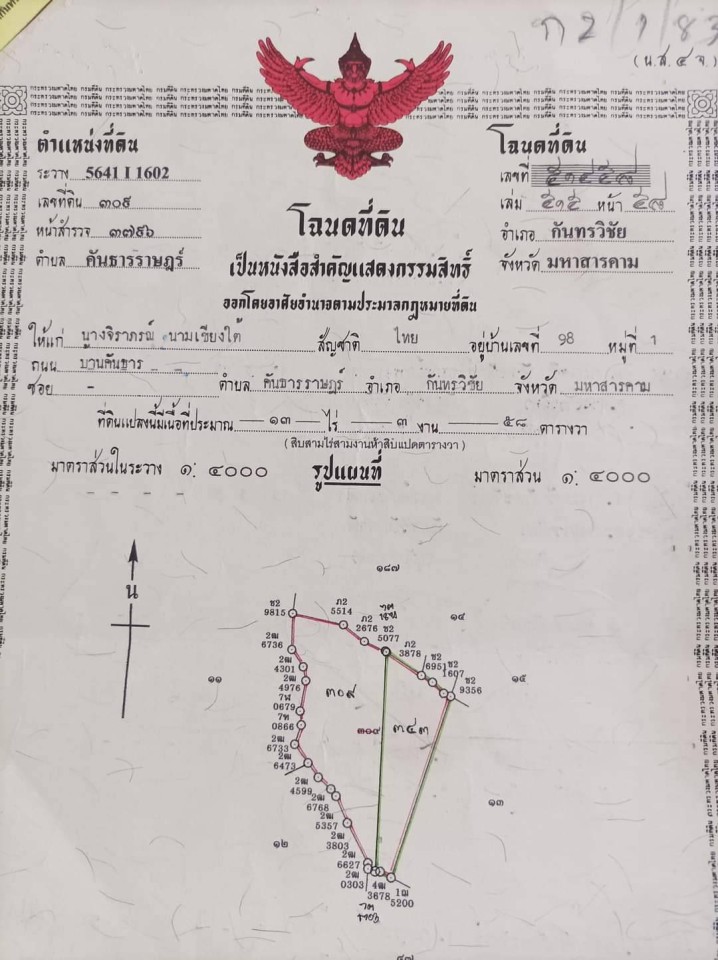 ก 2/1/83
(น.ส.๔ จ.)
ตำแหน่งที่ดิน
ระวาง 5641 I 1602
เลขที่ดิน ๓๐๙
หน้าสำรวจ ๓๗๙๖
ตำบล คันธารราษฎร์
โฉนดที่ดิน
เลขที่
เล่ม ๕๑๕ หน้า ๕๘
อำเภอ กันทรวิชัย
จังหวัด มหาสารคาม
โฉนดที่ดิน
เป็นหนังสือสำคัญแสดงกรรมสิทธิ์
ออกโดยอาศัยอำนาจตามประมวลกฎหมายที่ดิน
ให้แก่ นางจิราภรณ์ นามเชียงใต้ สัญชาติ ไทย อยู่บ้านเลขที่ 98 หมู่ที่ 1
ถนน บ้านคันธาร
ซอย – ตำบล คันธารราษฎร์ อำเภอ กันทรวิชัย จังหวัด มหาสารคาม
ที่ดินแปลงนี้มีเนื้อที่ประมาณ ๑๓ ไร่ ๓ งาน ๕๘ ตารางวา
(สิบสามไร่สามงานห้าสิบแปดตารางวา)
มาตราส่วนในระวาง ๑: ๔๐๐๐ รูปแผนที่ มาตราส่วน ๑: ๔๐๐๐
น
๑๘๗
ช2
9815
ภ2
5514
ภ2
2676
ช2
5077
ภ2
3878
๑๔
ช2
6951
ช2
1607
ช2
9356
๑๕
2ฒ
6736
๑๑
2ฒ
4301
2ฒ
4976
7ฬ
0679
7ท
0866
๓๐๙
๓๑๙
๓๔๓
2ฒ
6733
2ฒ
6473
2ฒ
4599
2ฒ
6768
2ฒ
5357
2ฒ
3803
๑๓
๑๒
2ฒ
6627
2ฒ
0303
4ฒ
3678
1ฒ
5200
๔๗